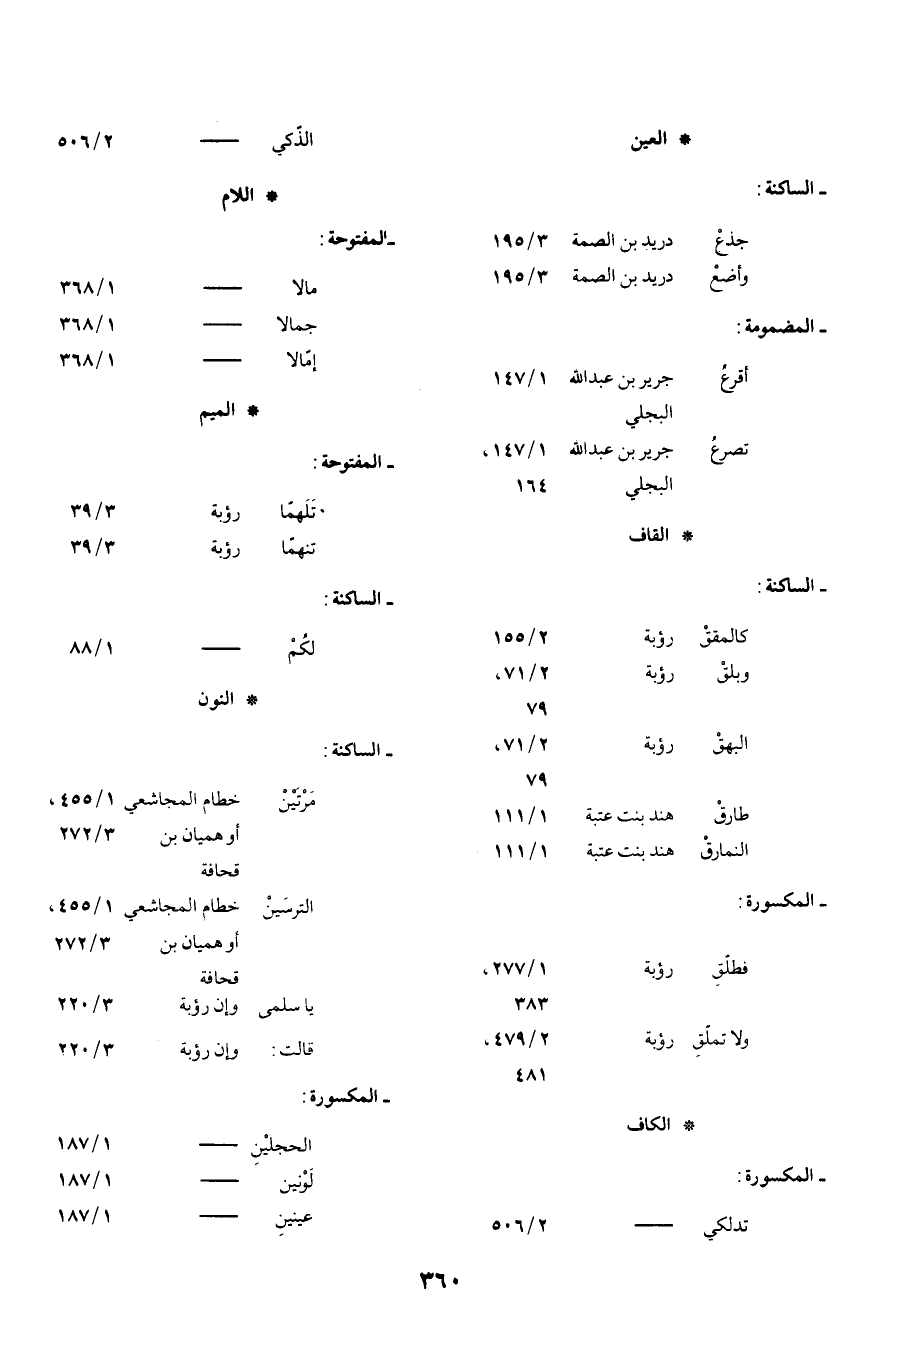 * العين
ـ الساكنة :
جذعْ دريد بن الصمة ١٩٥/٣
وأضعْ دريد بن الصمة ١٩٥/٣
ـ المضمومة :
أقرعُ جرير بن عبدالله ١٤٧/١
البجلي
تصرعُ جرير بن عبدالله ١٤٧/١،
البجلي ١٦٤
* القاف
ـ الساكنة :
كالمققْ رؤبة ١٥٥/٢
وبلقْ رؤبة ٧١/٢،
٧٩
البهقْ رؤبة ٧١/٢،
٧٩
طارقْ هند بنت عتبة ١١١/١
النمارقْ هند بنت عتبة ١١١/١
ـ المكسورة :
فطلّقِ رؤبة ٢٧٧/١،
٣٨٣
ولا تملّقِ رؤبة ٤٧٩/٢،
٤٨١
* الكاف
ـ المكسورة :
تدلكي —— ٥٠٦/٢
الذّكي —— ٥٠٦/٢
* اللام
ـ المفتوحة :
مالا —— ٣٦٨/١
جمالا —— ٣٦٨/١
إمّالا —— ٣٦٨/١
* الميم
ـ المفتوحة :
تَلَهمّا رؤبة ٣٩/٣
تنهمّا رؤبة ٣٩/٣
ـ الساكنة :
لكُمْ —— ٨٨/١
* النون
ـ الساكنة :
مَرْتَيْنْ خطام المجاشعي ٤٥٥/١ ،
أو هميان بن ٢٧٢/٣
قحافة
الترسَينْ خطام المجاشعي ٤٥٥/١ ،
أو هميان بن ٢٧٢/٣
قحافة
يا سلمى وإن رؤبة ٢٢٠/٣
قالت : وإن رؤبة ٢٢٠/٣
ـ المكسورة :
الحجليْنِ —— ١٨٧/١
لَوْنين —— ١٨٧/١
عينينِ —— ١٨٧/١
٣٦٠